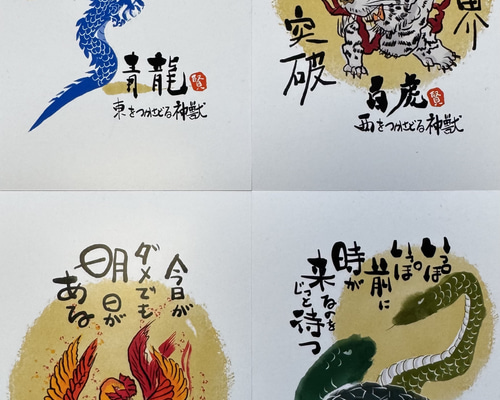 青龍
賢
東をつかさどる神獣
突破
界
白虎
賢
西をつかさどる神獣
今日が
ダメでも
明日が
ある
いっぽ
いっぽ。
前に
時が
来るのを
じっと待つ